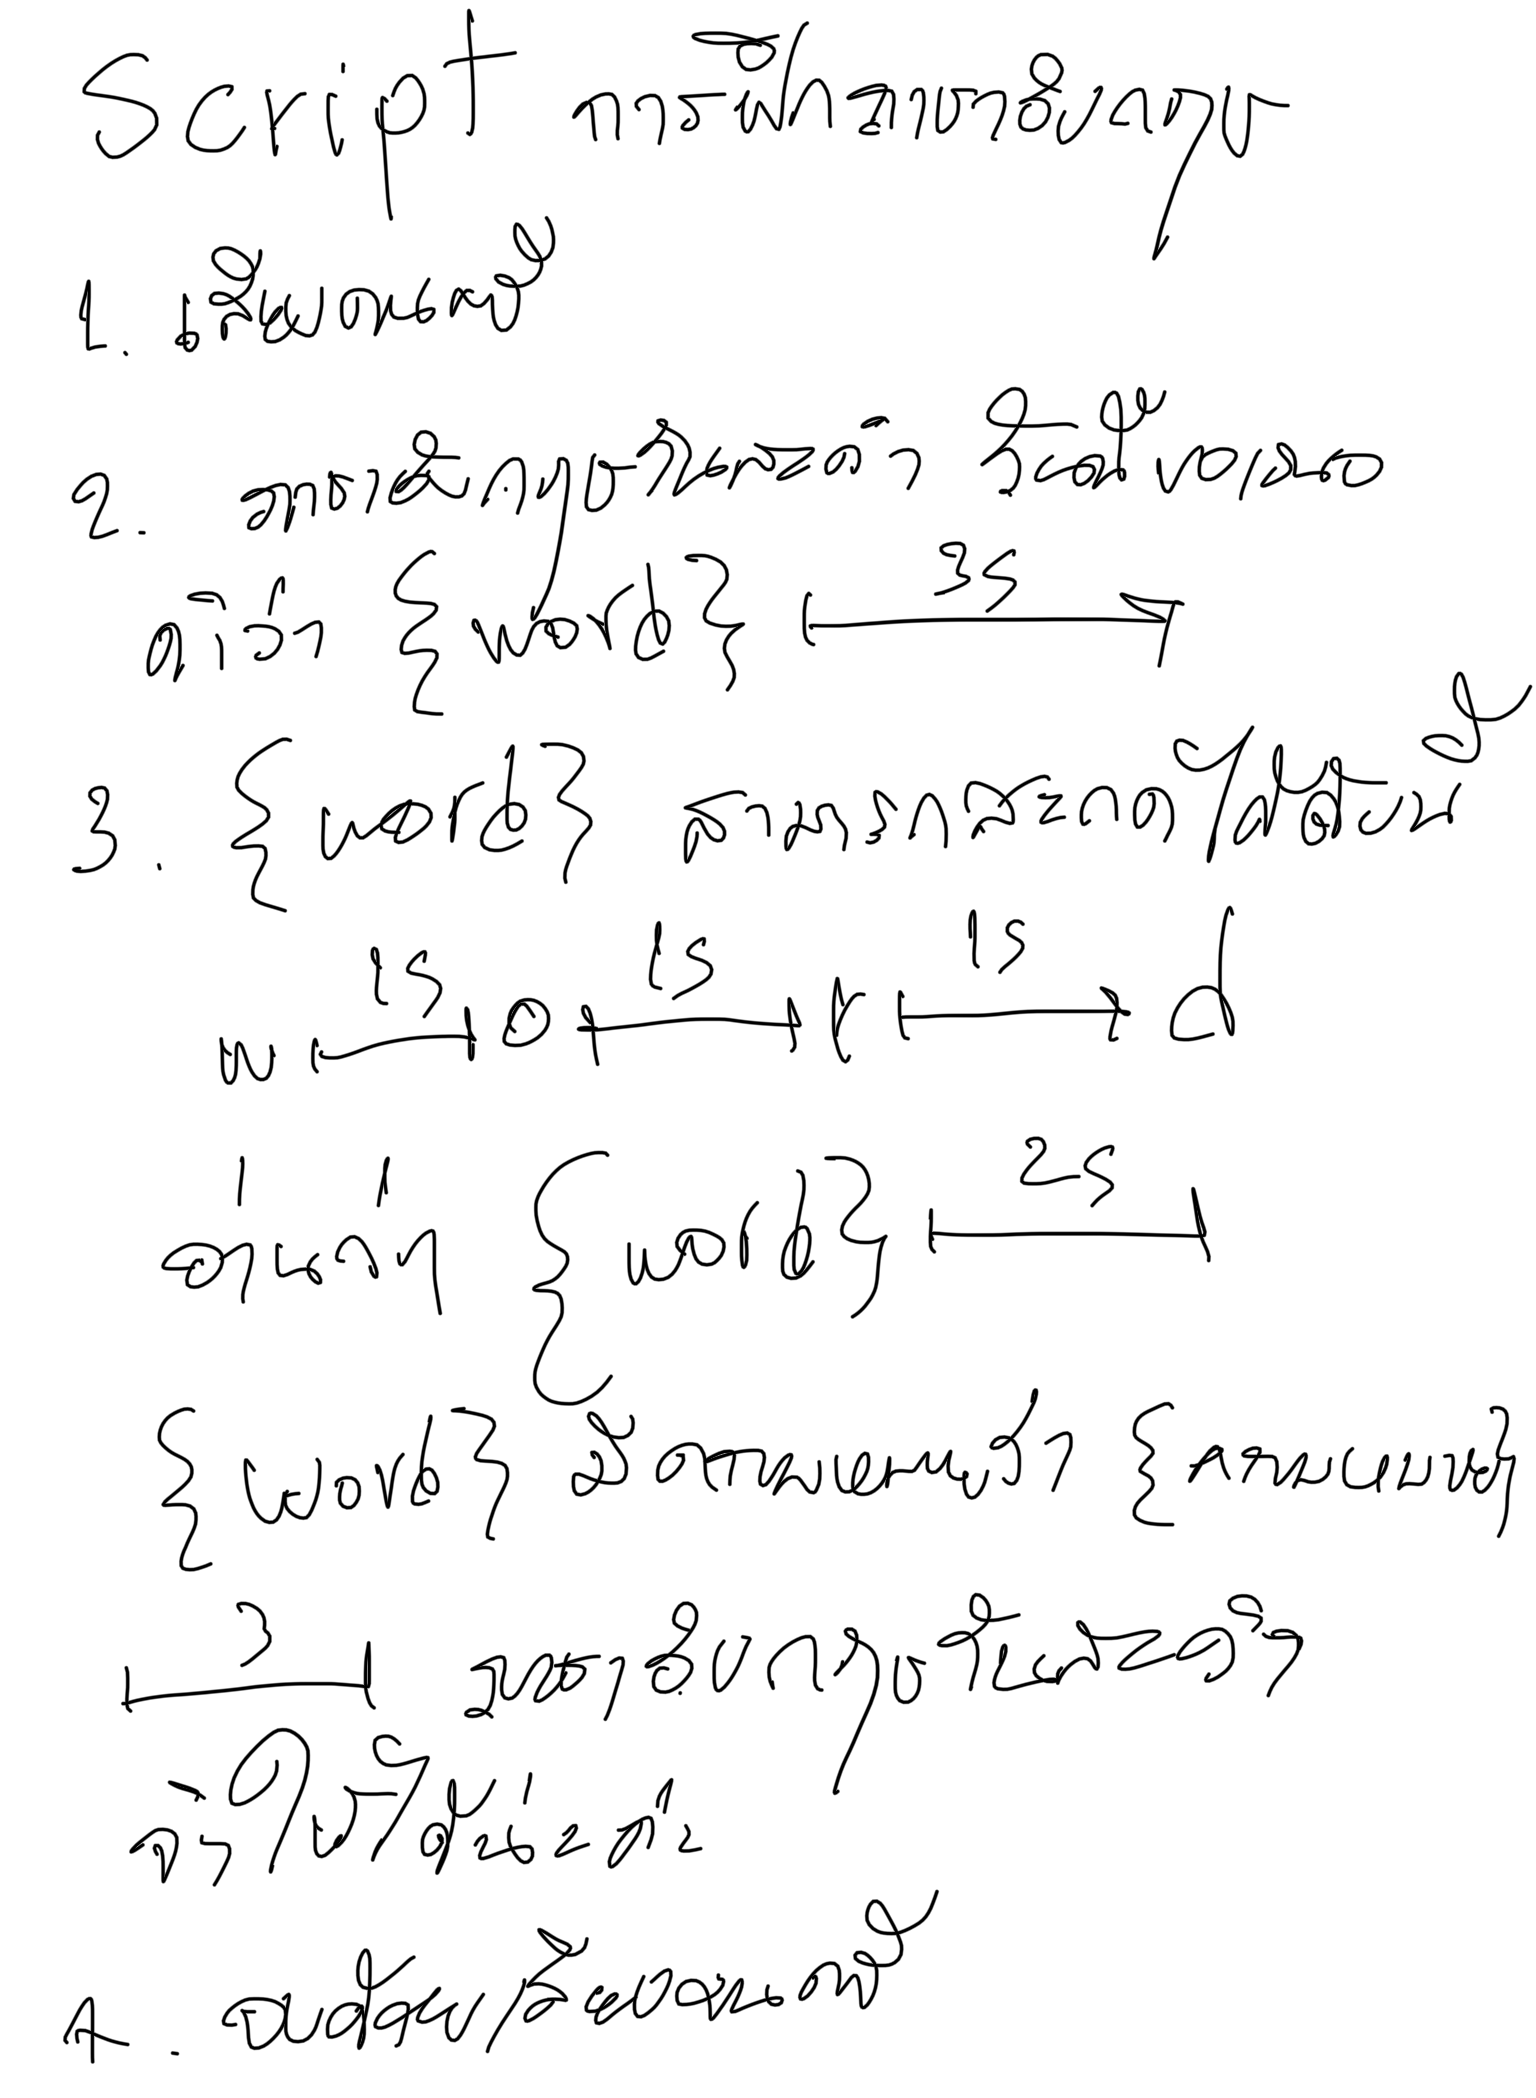 Script การฝึกภาษาอังกฤษ
1. เสียงดนตรี
2. ภาษาอังกฤษวันละคำ วันนี้ขอเสนอ
คำว่า {word} 3s
3. {word} สามารถสะกดได้ดังนี้
w 1s o 1s r 1s d
อ่านว่า {word} 2s
{word} มีความหมายว่า {ความหมาย}
3 ภาษาอังกฤษวันละคำ
จำให้ได้นะคะ
4. จบด้วยเสียงดนตรี